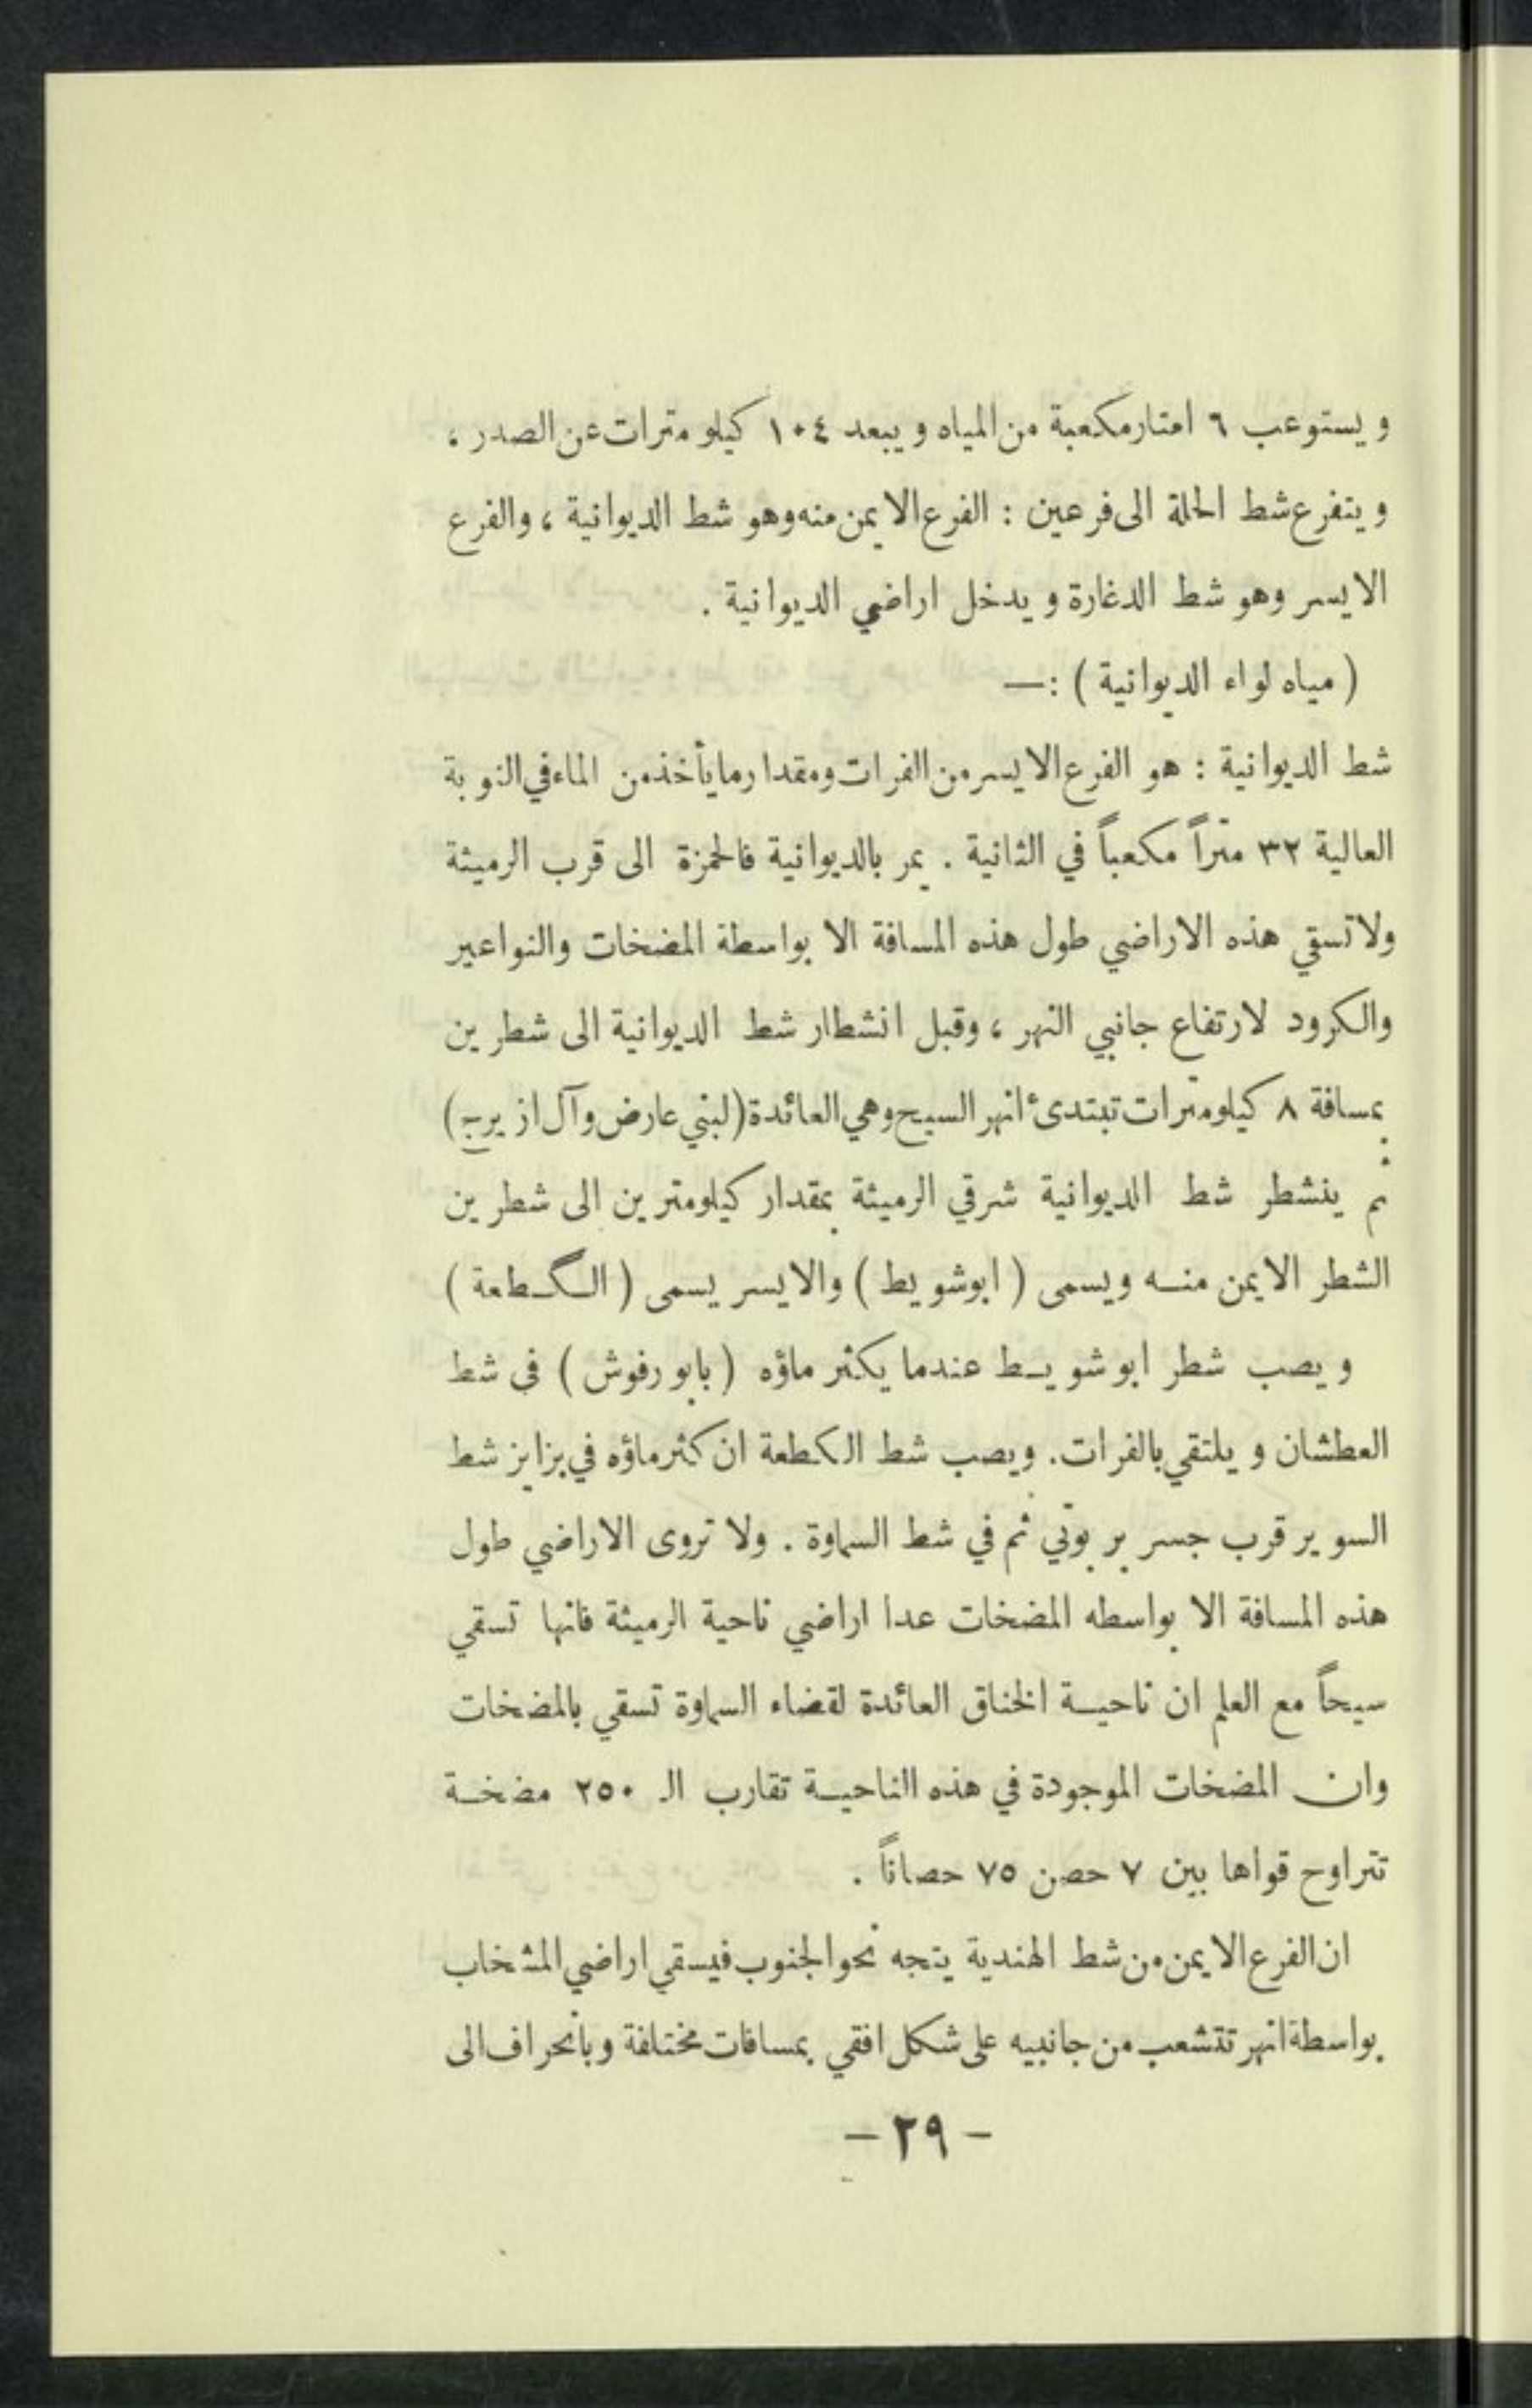 ويستوعب ٦ امتار مكعبة من المياه ويبعد ١٠٤ كيلو مترات عن الصدر ،
ويتفرع شط الحلة الى فرعين : الفرع الايمن منه وهو شط الديوانية ، والفرع
الايسر وهو شط الدغارة ويدخل اراضي الديوانية .
( مياه لواء الديوانية ) :—
شط الديوانية : هو الفرع الايسر من الفرات ومقدار ما يأخذ من الماء في النوبة
العالية ٣٢ متراً مكعباً في الثانية . يمر بالديوانية فالحمزة الى قرب الرميثة
ولا تسقي هذه الاراضي طول هذه المسافة الا بواسطة المضخات والنواعير
والكرود لارتفاع جانبي النهر ، وقبل انشطار شط الديوانية الى شطرين
بمسافة ٨ كيلومترات تبتدئ انهر السيح وهي العائدة (لبني عارض وآل ازيرج)
ثم ينشطر شط الديوانية شرقي الرميثة بمقدار كيلومترين الى شطرين
الشطر الايمن منه ويسمى ( ابوشويط ) والايسر يسمى ( الگطعة )
ويصب شطر ابو شويط عندما يكثر ماؤه ( بابو رفوش ) في شط
العطشان ويلتقي بالفرات. ويصب شط الكطعة ان كثر ماؤه في بزايز شط
السوير قرب جسر بربوتي ثم في شط السماوة . ولا تروى الاراضي طول
هذه المسافة الا بواسطه المضخات عدا اراضي ناحية الرميثة فانها تسقي
سيحاً مع العلم ان ناحية الخناق العائدة لقضاء السماوة تسقي بالمضخات
وان المضخات الموجودة في هذه الناحية تقارب الـ ٢٥٠ مضخة
تتراوح قواها بين ٧ حصن ٧٥ حصاناً .
ان الفرع الايمن من شط الهندية يتجه نحو الجنوب فيسقي اراضي المشخاب
بواسطة انهر تتشعب من جانبيه على شكل افقي بمسافات مختلفة وبانحراف الى
— ٢٩ —